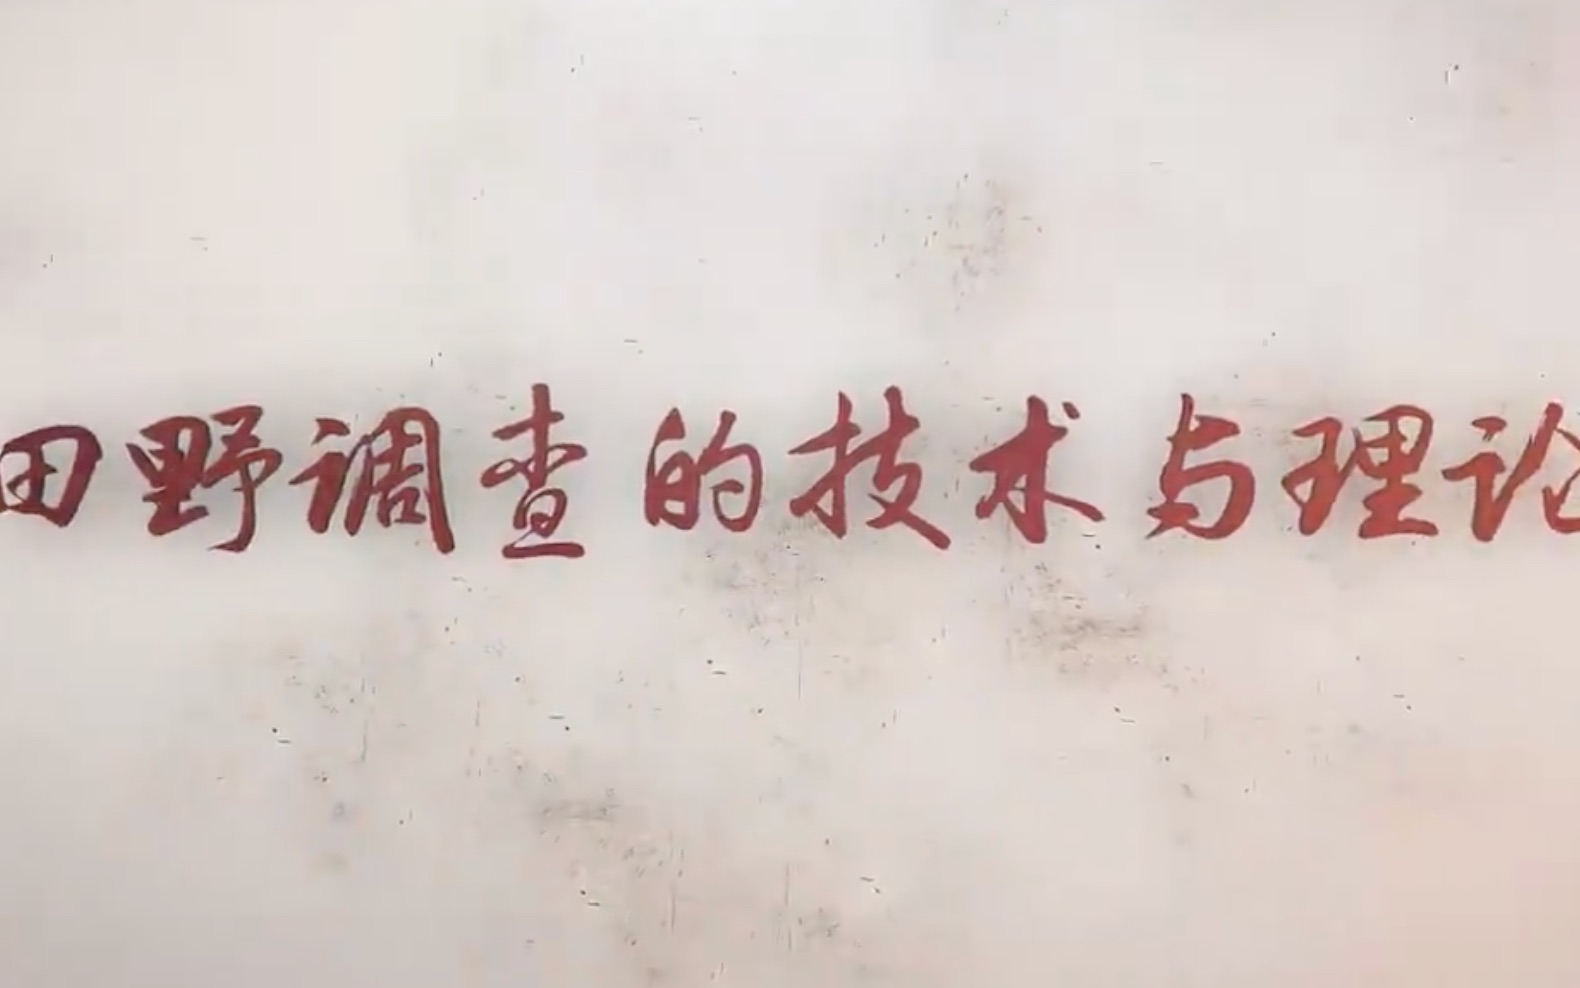 田野调查的技术与理论